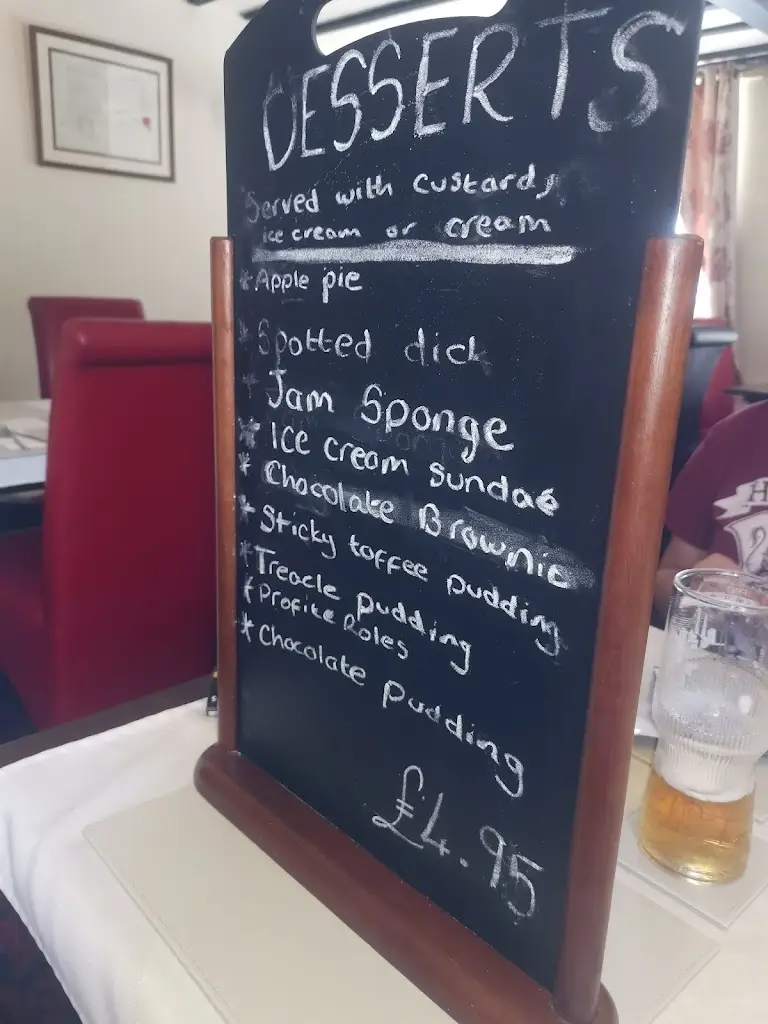 DESSERTS
Served with custard,
ice cream or cream
* Apple pie
* Spotted dick
* Jam Sponge
* Ice cream sundae
* Chocolate Brownie
* Sticky toffee pudding
* Treacle pudding
* Profite Roles
* Chocolate pudding
£4.95